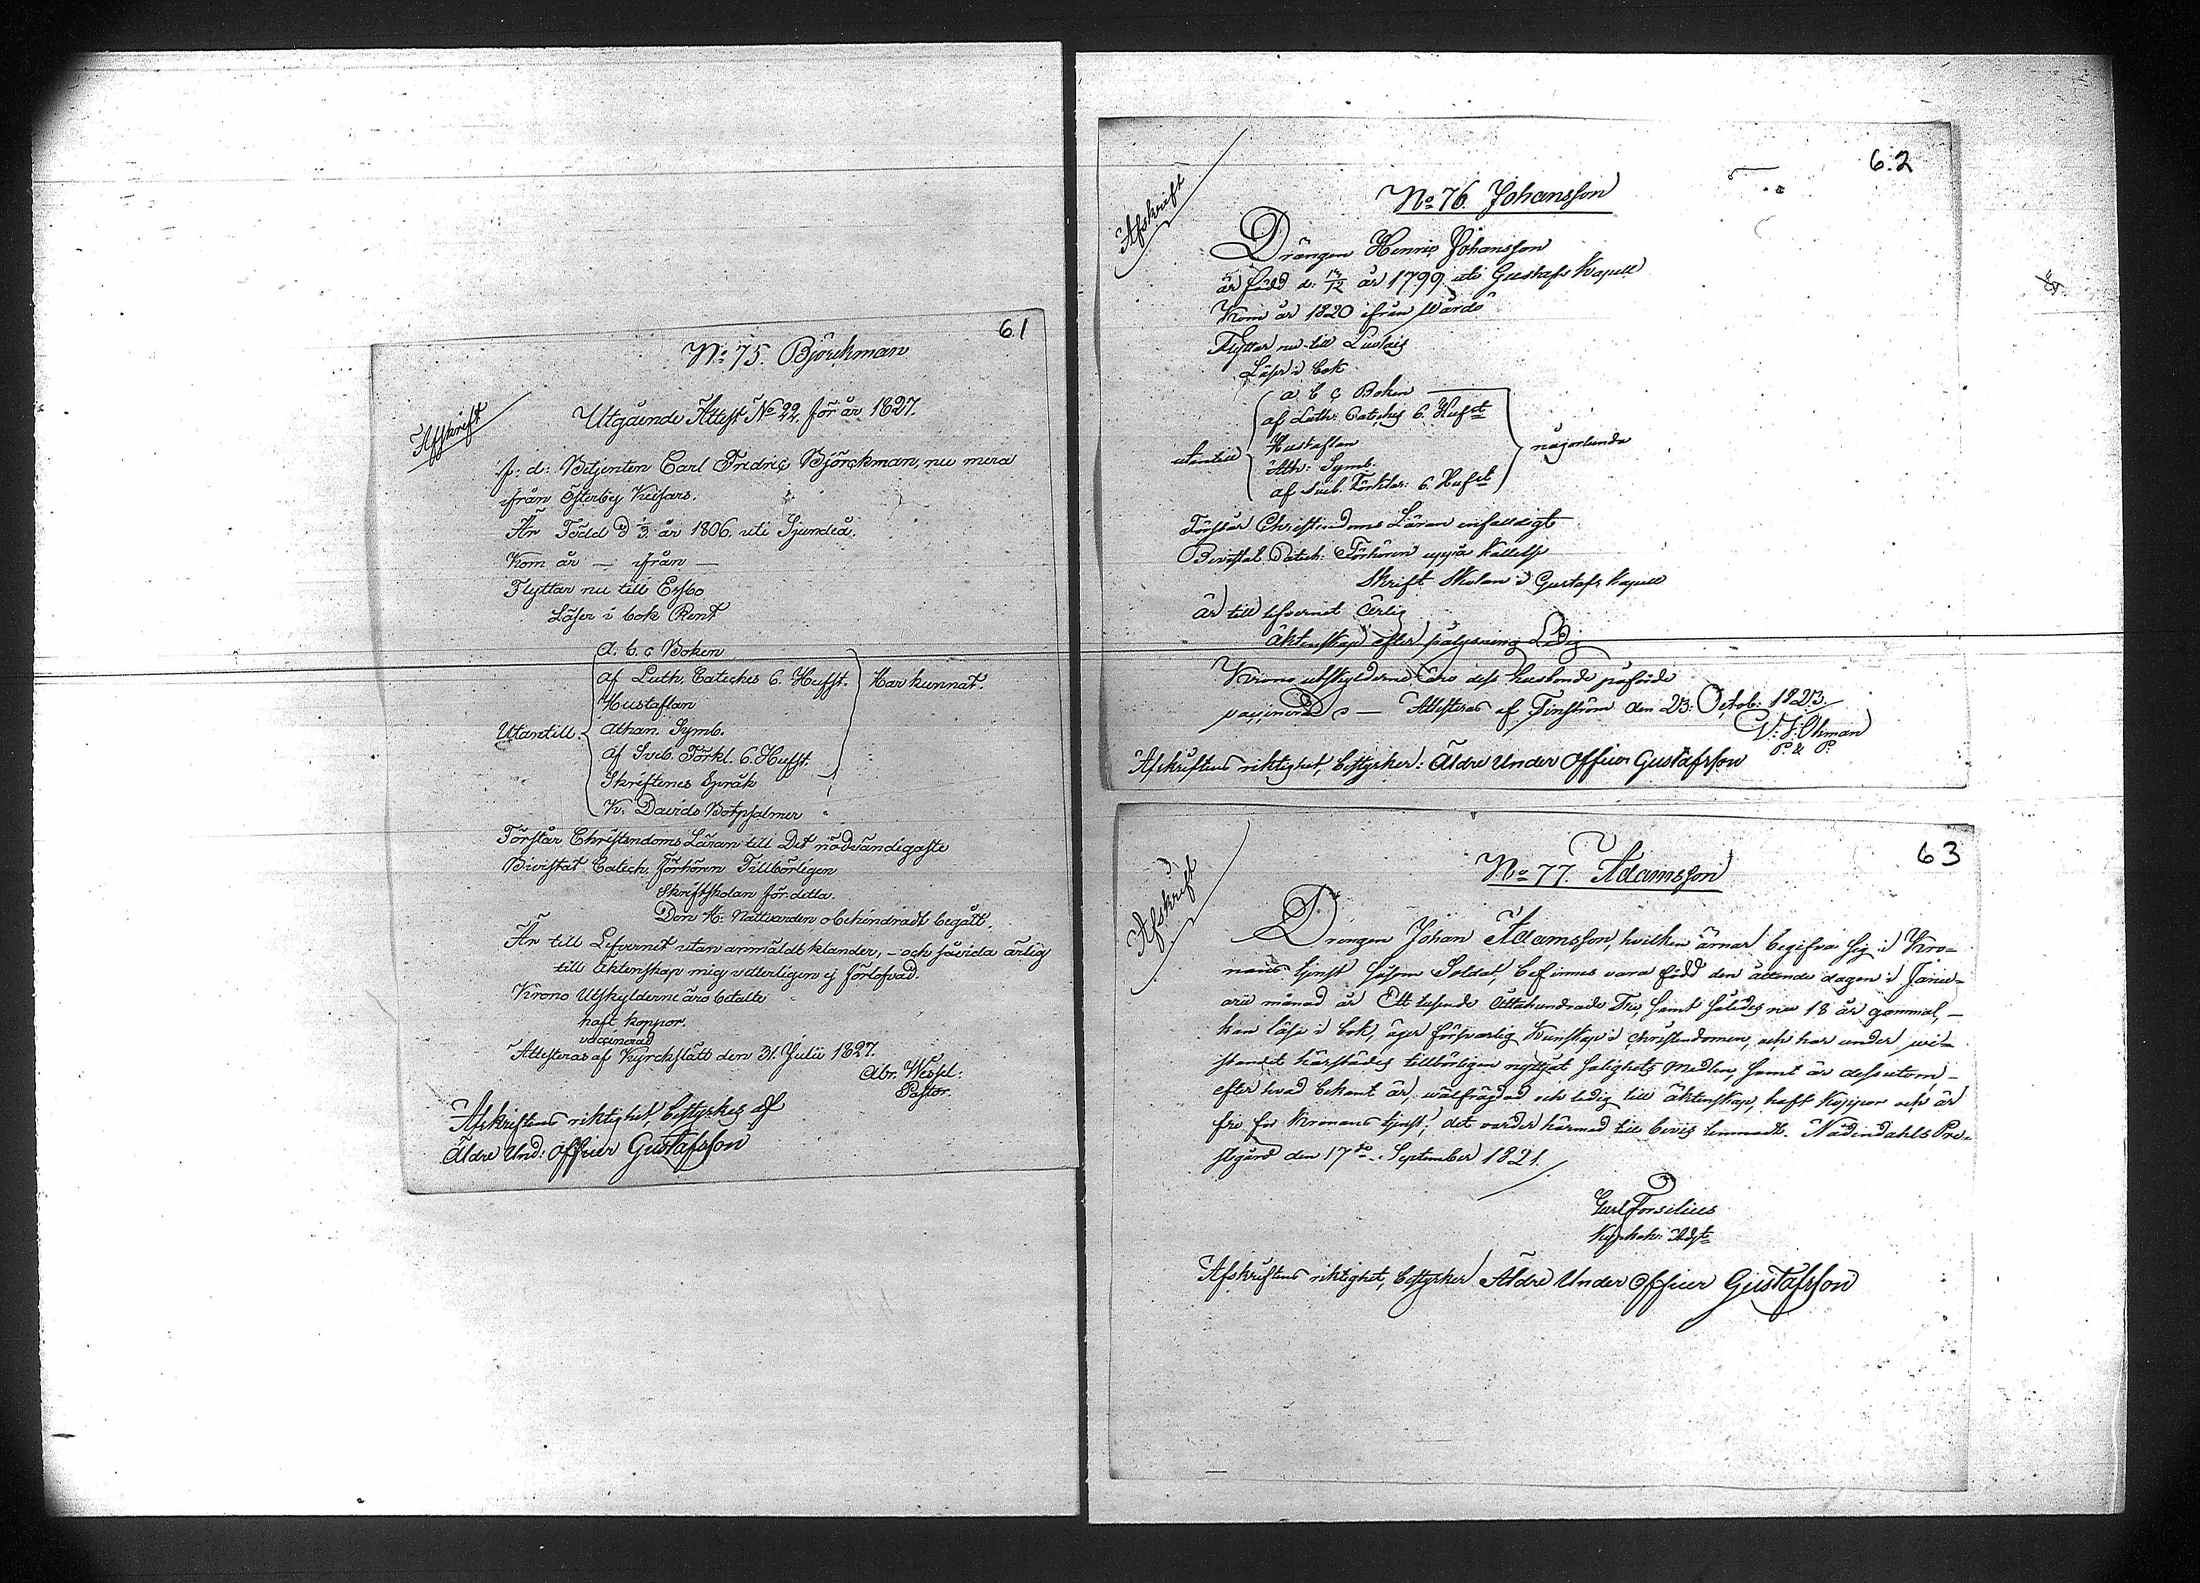 61
No 75. Björckman
Afskrift
Utgående Attest No 22, för år 1827.
f: d: Betjenten Carl Fredric Björckman, nu mera
ifrån Österby Kuifars.
Är Född d 1/3 år 1806. uti Sjundeå.
Kom år — ifrån —
Flyttar nu till Esbo
Läser i bok Rent
a. b. c Boken
af Luth. Cateches 6. Hufst. Har kunnat.
Hustaflan
Utantill. Athan. Symb.
af Sveb. Förkl. 6. Hufst.
Skriftenes Språk
K. Davids Botpsalmer
Förstår Christendoms Läran till Det nödvändigaste
Bivistat Catech. Förhören Tillbörligen
Skriftskolan för detta.
Den H: Nattvarden obehindradt begått.
Är till Lefvernet utan anmäldt klander, - och såvida ärlig
till äktenskap mig veterligen ej förlofvad.
Krono Utskylderne äro betalte
haft koppor.
vaccinerad
Attesteras af Kyrckslätt den 31. Julii 1827.
Abr. Wessel:
Pastor.
Afskriftens riktighet, bestyrkes af
Äldre Und: officier Gustafsson
62
Afskrift
No 76. Johansson
Drängen Henric Johansson
är född d: 14/12 år 1799. uti Gustafs Kapell
Kom år 1820 ifrån Wårdö
Flyttar nu till
Läser i bok
a b c Boken
af Luth: Catechs 6. Hufst
utantill Hustaflan någorlunda
Ath: Symb.
af Sveb. Förklar: 6. Hufst
Förstår Christendoms Läran enfaldigt
Bevistat Catech: Förhören uppå kallelse
Skrift Skolan i Gustafs Kapell
är till lefvernet Ärlig
äktenskap efter pålysning Ledig
Krono utskylderne äro dess husbonde påförde
vaccinerad — Attesteras af Finström den 23. Octob: 1823.
V: F: Öhman
P. & P.
Afskriftens riktighet, bestyrker: Äldre Under Officier Gustafsson
63
Afskrift
No 77. Adamsson
Drengen Johan Adamsson, hvilken ärnar begifva sig i Kro-
nans tjenst såsom Soldat, befinnes vara född den åttende dagen i Janu-
arii månad år Ett tusende Åttahundrade Tre, samt således nu 18 år gammal, -
han läser i bok, äger försvarlig kunskap i christendomen, och har under wi-
standet härstädes tillbörligen nyttjat salighets Medlen, samt är dessutom, -
efter hvad bekant är, wälfrägdad och ledig till äktenskap, haft Koppor och är
fri för Kronans tjenst; det varder härmed till bevis lemnadt. Nådendahls Pre-
stgård den 17de September 1821.
Carl Forsilius
Kyrkoh: Adjt
Afskriftens riktighet, bestyrker Äldre Under Officier Gustafsson